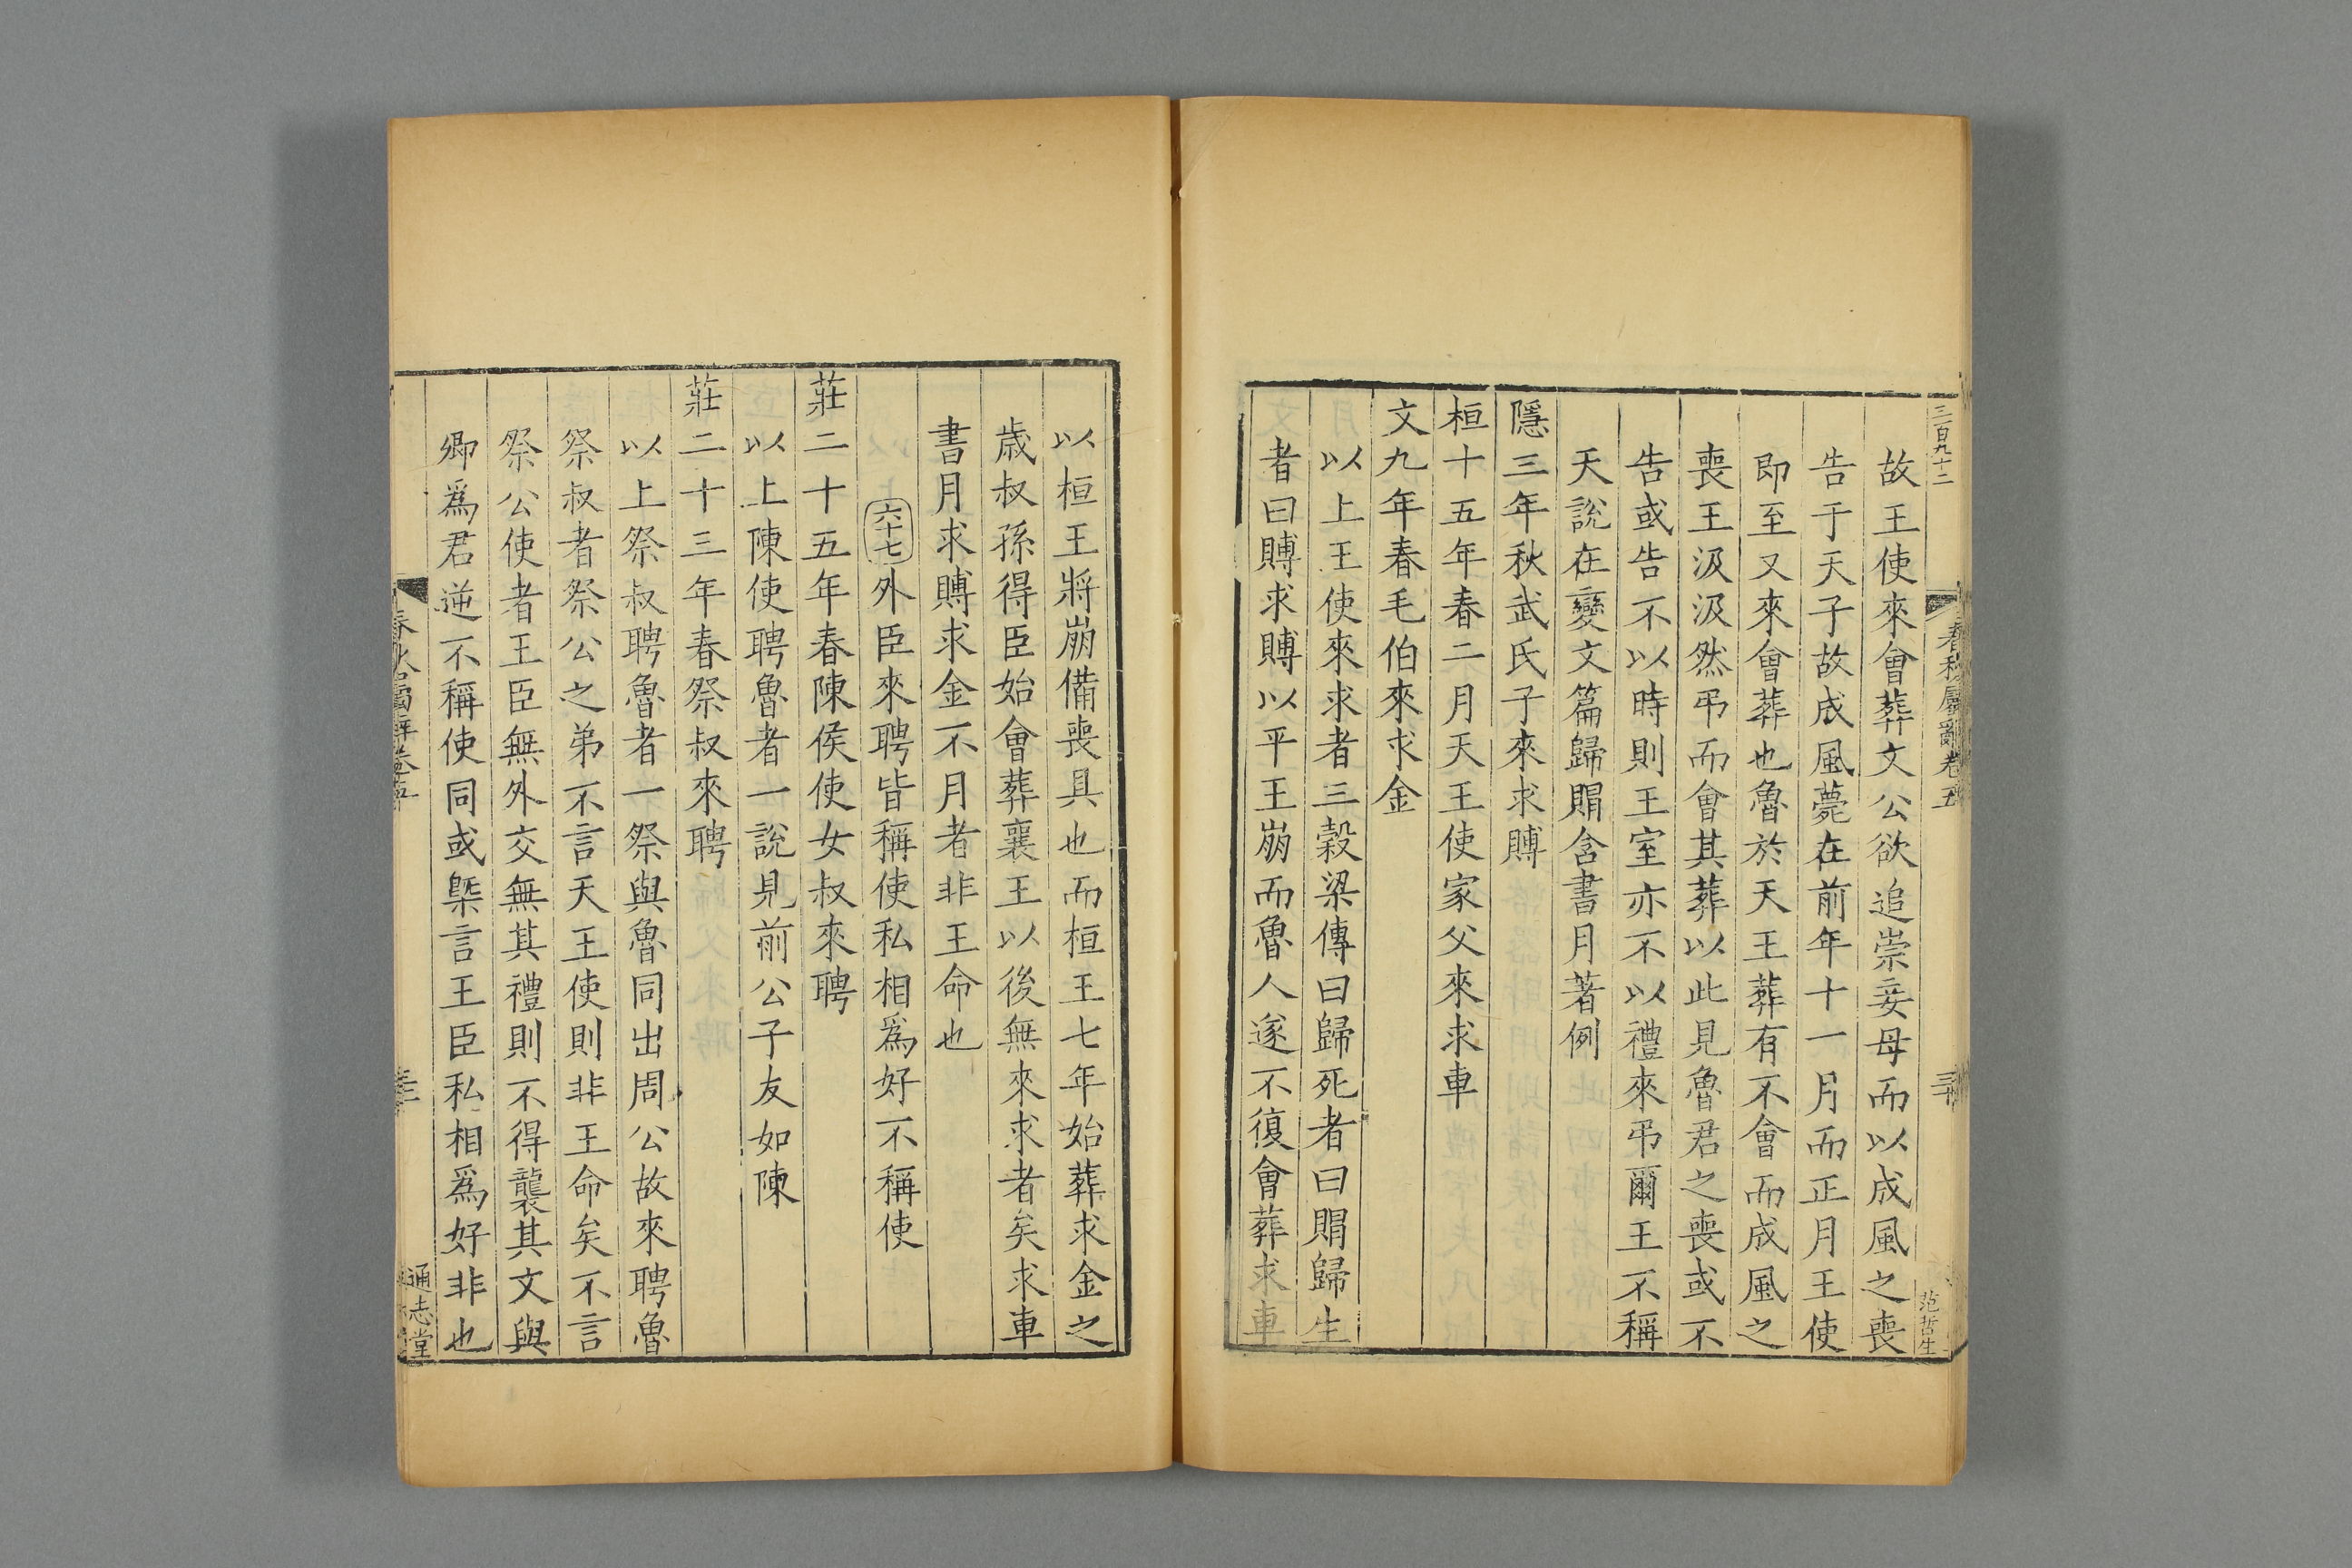 三百九十二
春秋屬辭卷五
三十
范哲生
故王使來會葬文公欲追崇妾母而以成風之喪
告于天子故成風薨在前年十一月而正月王使
即至又來會葬也魯於天王葬有不會而成風之
喪王汲汲然弔而會其葬以此見魯君之喪或不
告或告不以時則王室亦不以禮來弔爾王不稱
天說在變文篇歸賵含書月著例
隱三年秋武氏子來求賻
桓十五年春二月天王使家父來求車
文九年春毛伯來求金
以上王使來求者三穀梁傳曰歸死者曰賵歸生
者曰賻求賻以平王崩而魯人遂不復會葬求車
以桓王將崩備喪具也而桓王七年始葬求金之
歲叔孫得臣始會葬襄王以後無來求者矣求車
書月求賻求金不月者非王命也
六十七外臣來聘皆稱使私相爲好不稱使
莊二十五年春陳侯使女叔來聘
以上陳使聘魯者一說見前公子友如陳
莊二十三年春祭叔來聘
以上祭叔聘魯者一祭與魯同出周公故來聘魯
祭叔者祭公之弟不言天王使則非王命矣不言
祭公使者王臣無外交無其禮則不得襲其文與
卿爲君逆不稱使同或槩言王臣私相爲好非也
春秋屬辭卷五
通志堂